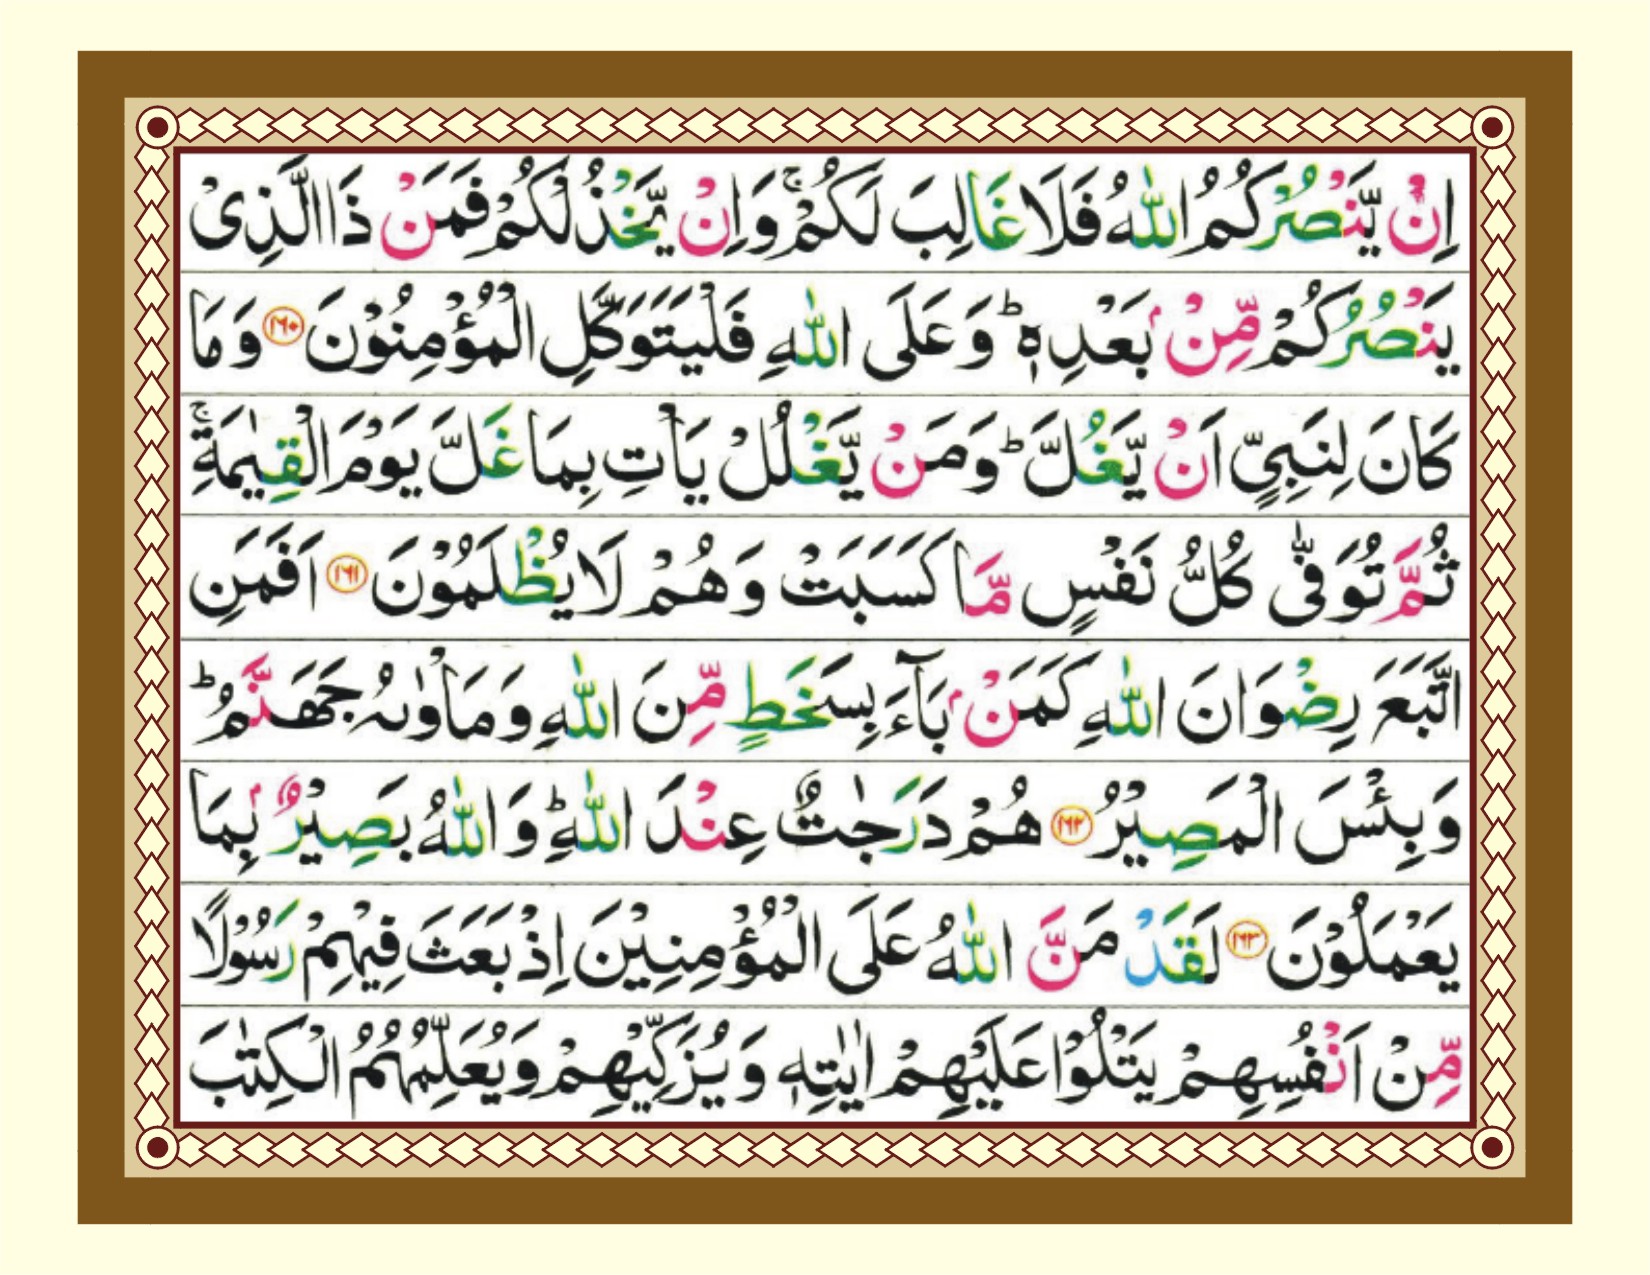 اِنْ يَّنْصُرْكُمُ اللّٰهُ فَلَا غَالِبَ لَكُمْ ۚ وَاِنْ يَّخْذُلْكُمْ فَمَنْ ذَا الَّذِىْ
يَنْصُرُكُمْ مِّنْۢ بَعْدِهٖ ؕ وَعَلَى اللّٰهِ فَلْيَتَوَكَّلِ الْمُؤْمِنُوْنَ ﴿۱۶۰﴾ وَمَا
كَانَ لِنَبِىٍّ اَنْ يَّغُلَّ ؕ وَمَنْ يَّغْلُلْ يَاْتِ بِمَا غَلَّ يَوْمَ الْقِيٰمَةِ ۚ
ثُمَّ تُوَفّٰى كُلُّ نَفْسٍ مَّا كَسَبَتْ وَهُمْ لَا يُظْلَمُوْنَ ﴿۱۶۱﴾ اَفَمَنِ
اتَّبَعَ رِضْوَانَ اللّٰهِ كَمَنْۢ بَآءَ بِسَخَطٍ مِّنَ اللّٰهِ وَمَاْوٰٮهُ جَهَنَّمُ ؕ
وَبِئْسَ الْمَصِيْرُ ﴿۱۶۲﴾ هُمْ دَرَجٰتٌ عِنْدَ اللّٰهِ ؕ وَاللّٰهُ بَصِيْرٌۢ بِمَا
يَعْمَلُوْنَ ﴿۱۶۳﴾ لَقَدْ مَنَّ اللّٰهُ عَلَى الْمُؤْمِنِيْنَ اِذْ بَعَثَ فِيْهِمْ رَسُوْلًا
مِّنْ اَنْفُسِهِمْ يَتْلُوْا عَلَيْهِمْ اٰيٰتِهٖ وَيُزَكِّيْهِمْ وَيُعَلِّمُهُمُ الْكِتٰبَ